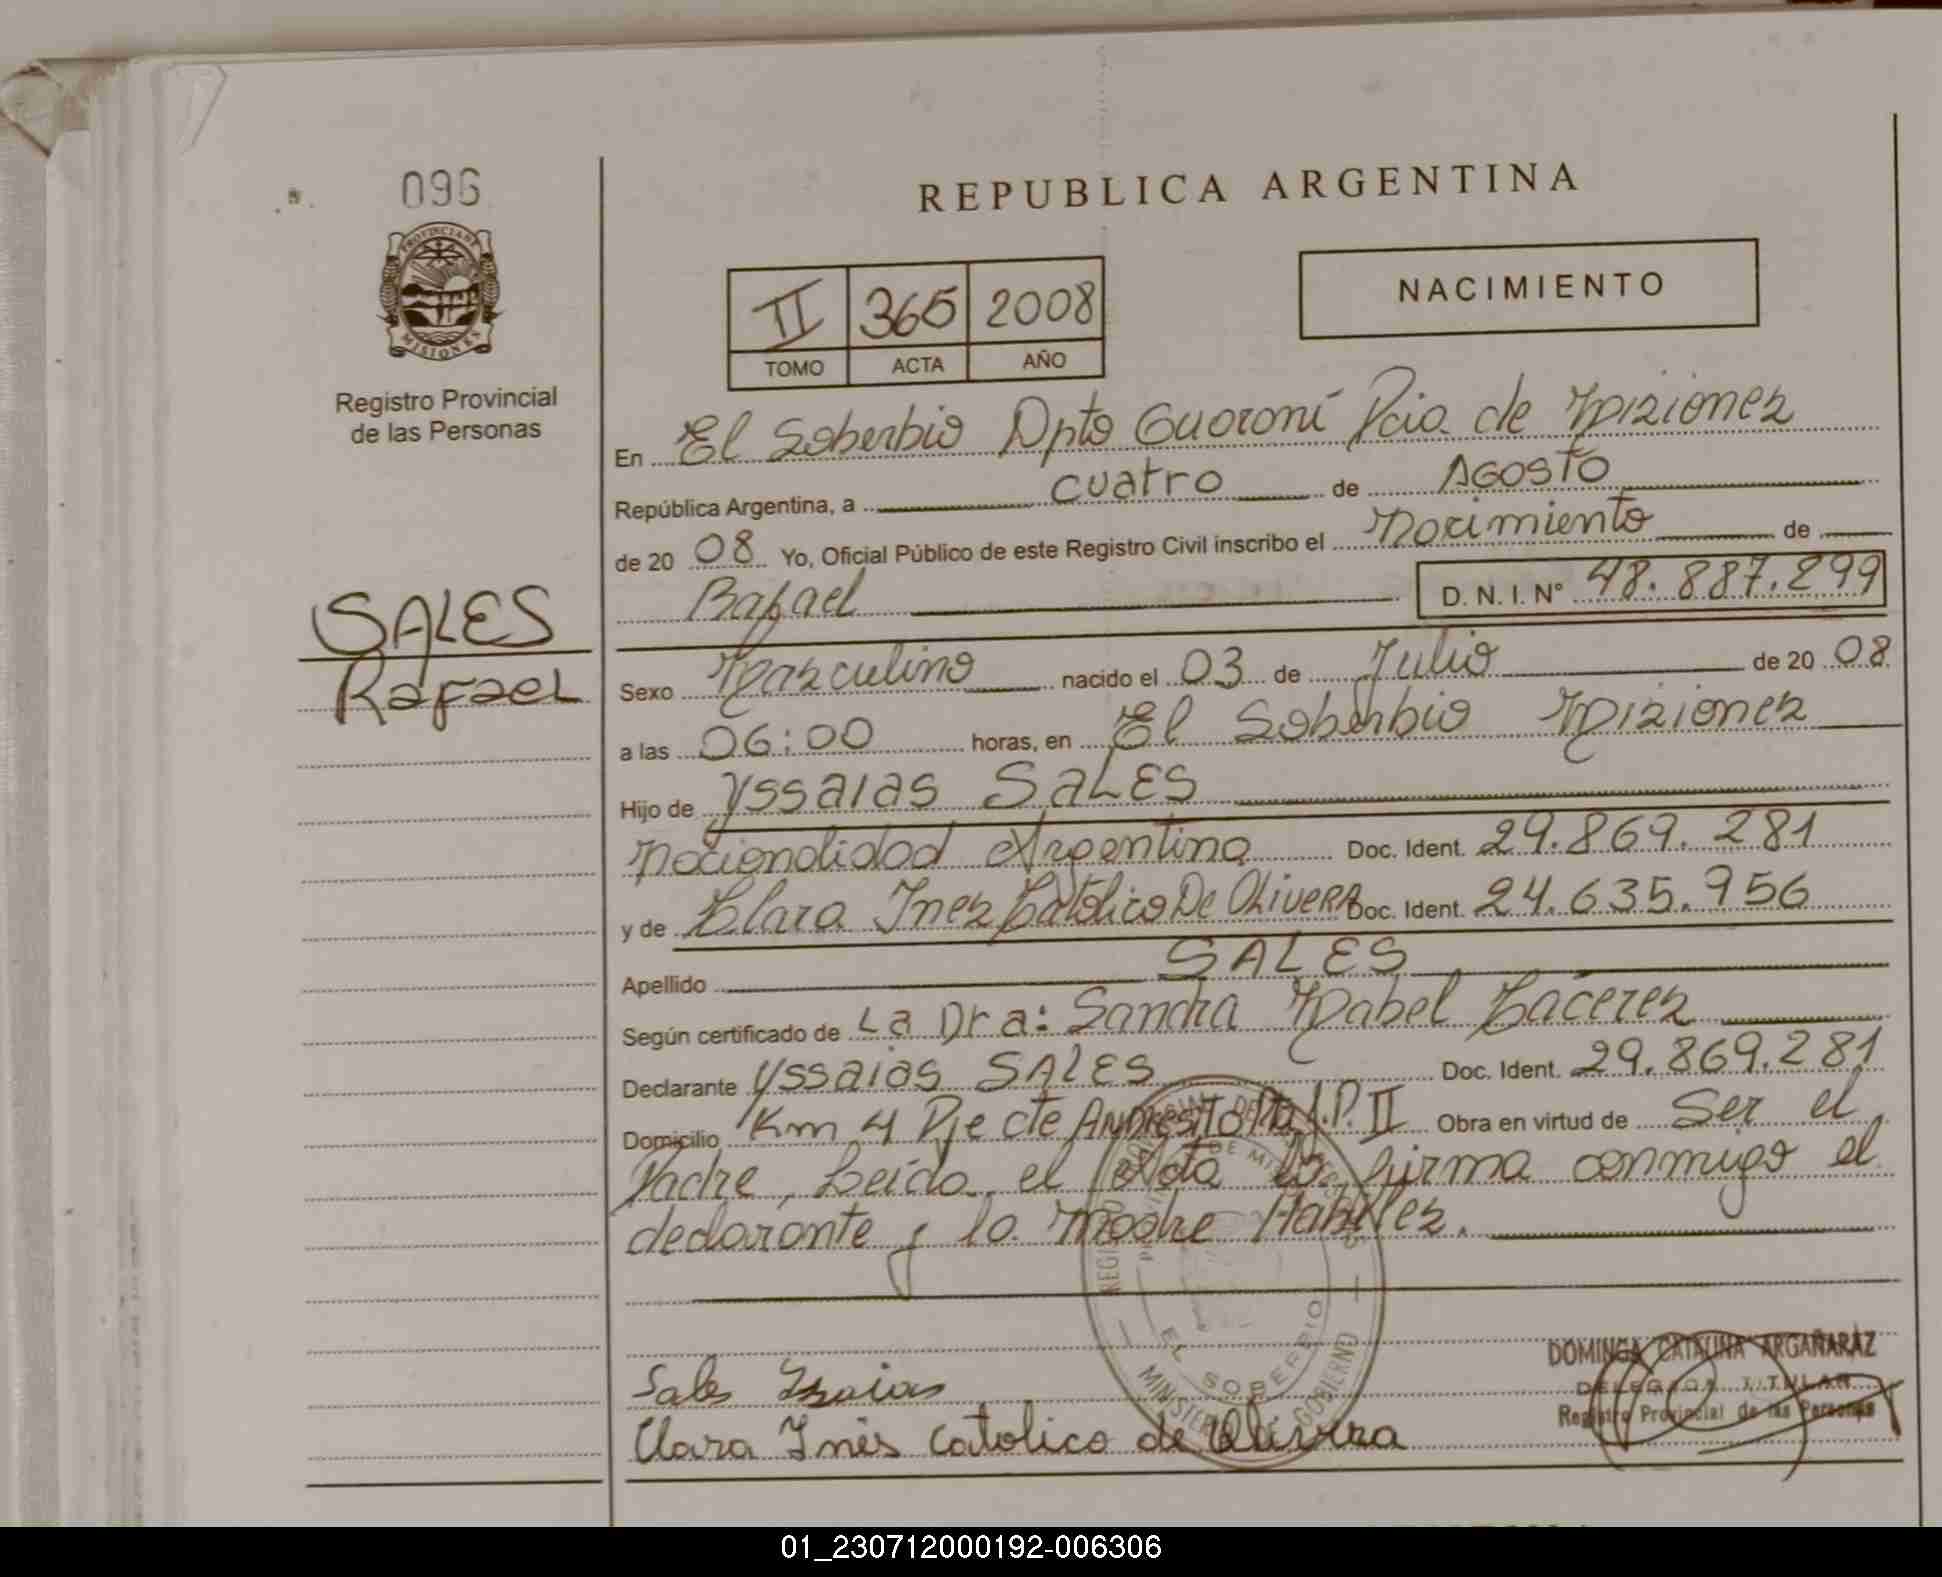 096
PROVINCIA DE
MISIONES
Registro Provincial
de las Personas
SALES
Rafael
REPUBLICA ARGENTINA
II 365 2008
TOMO ACTA AÑO
NACIMIENTO
En El Soberbio Dpto Guaraní Pcia. de Misiones
República Argentina, a cuatro de AGOSTO
de 20 08 Yo, Oficial Público de este Registro Civil inscribo el Nacimiento de
Rafael D. N. I. Nº 48.887.299
Sexo Masculino nacido el 03 de Julio de 20 08
a las 06:00 horas, en El Soberbio Misiones
Hijo de Yssaias SALES
Nacionalidad Argentina Doc. Ident. 29.869.281
y de Clara Ines Catolico De Olivera Doc. Ident. 24.635.956
Apellido SALES
Según certificado de La Dra: Sandra Mabel Cáceres
Declarante Yssaias SALES Doc. Ident. 29.869.281
Domicilio Km 4 Pje cte ANDRESITO I.P. II Obra en virtud de Ser el
Padre, Leída el Acta la firma conmigo el
declarante y la madre Habiles.
EL SOBERBIO
MINISTERIO GOBIERNO
DOMINGA CATALINA ARGAÑARAZ
DELEGADA TITULAR
Registro Provincial de las Personas
Sales Isaias
Clara Inés Catolico de Olivera
01_230712000192-006306